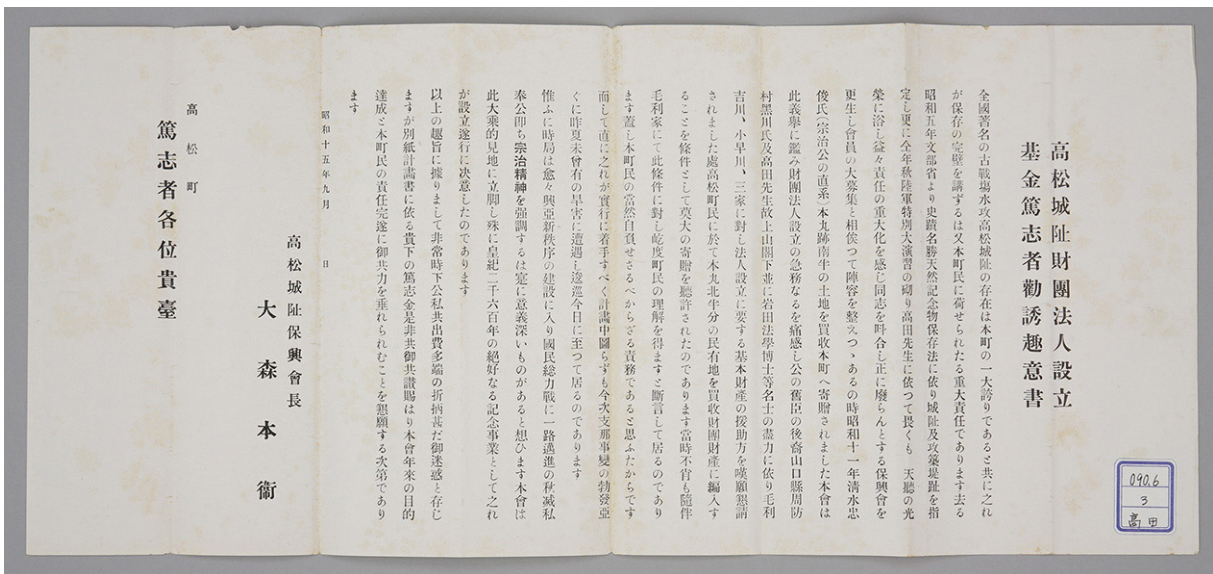 高松城阯財團法人設立
基金篤志者勸誘趣意書
全國著名の古戰場水攻高松城阯の存在は本町の一大誇りであると共に之れ
が保存の完璧を講ずるは又本町民に荷せられたる重大責任であります去る
昭和五年文部省より史蹟名勝天然記念物保存法に依り城阯及攻築堤趾を指
定し更に仝年秋陸軍特別大演習の砌り高田先生に依つて畏くも　天聽の光
榮に浴し益々責任の重大化を感じ同志を叫合し正に廢らんとする保興會を
更生し會員の大募集と相俟つて陣容を整えつゝあるの時昭和十一年淸水忠
俊氏(宗治公の直系)本丸跡南半の土地を買收本町へ寄贈されました本會は
此義擧に鑑み財團法人設立の急務なるを痛感し公の舊臣の後裔山口縣周防
村黑川氏及高田先生故上山閣下並に岩田法學博士等名士の盡力に依り毛利
吉川、小早川、三家に對し法人設立に要する基本財産の援助方を嘆願懇請
されました處高松町民に於て本丸北半分の民有地を買收財團財産に編入す
ることを條件として莫大の寄贈を聽許されたのであります當時不肖も隨伴
毛利家にて此條件に對し屹度町民の理解を得ますと斷言して居るのであり
ます蓋し本町民の當然自負せさるべからざる責務であると思ふたからです
而して直に之れが實行に着手すべく計畫中圖らずも今次支那事變の勃發亞
ぐに昨夏未曾有の旱害に遭遇し逡巡今日に至つて居るのであります
惟ふに時局は愈々興亞新秩序の建設に入り國民總力戰に一路邁進の秋滅私
奉公卽ち宗治精神を强調するは寔に意義深いものがあると想ひます本會は
此大乘的見地に立脚し殊に皇紀二千六百年の絕好なる記念事業として之れ
が設立遂行に决意したのであります
以上の趣旨に據りまして非常時下公私共出費多端の折柄甚だ御迷惑と存じ
ますが別紙計畫書に依る貴下の篤志金是非共御共讃賜はり本會年來の目的
達成と本町民の責任完遂に御共力を垂れられむことを懇願する次第であり
ます
昭和十五年九月　日
高松城阯保興會長
大森本衞
高松町
篤志者各位貴臺
090.6
3
高田